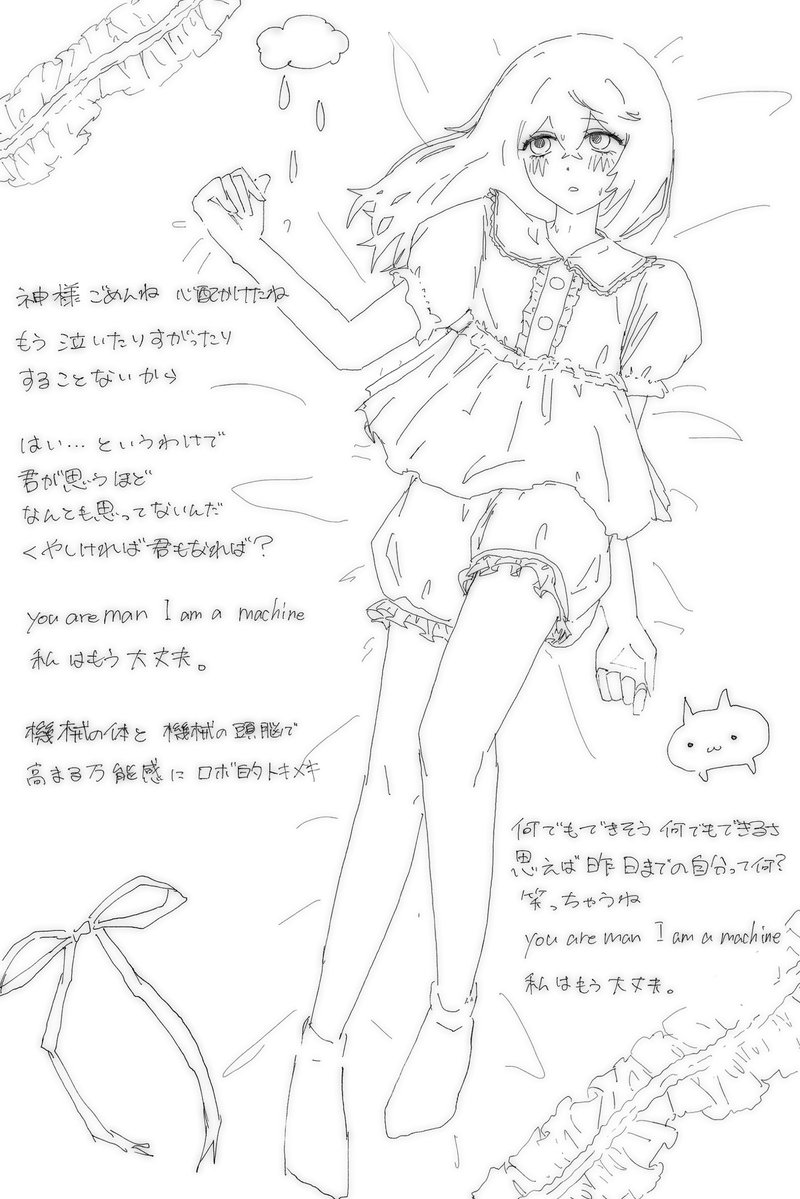 神様 ごめんね 心配かけたね
もう 泣いたりすがったり
することないから
はい… というわけで
君が思うほど
なんとも思ってないんだ
くやしければ君もなれば？
you are man I am a machine
私はもう大丈夫。
機械の体と 機械の頭脳で
高まる万能感に ロボ的トキメキ
何でもできそう 何でもできるさ
思えば昨日までの自分って何？
笑っちゃうね
you are man I am a machine
私はもう大丈夫。